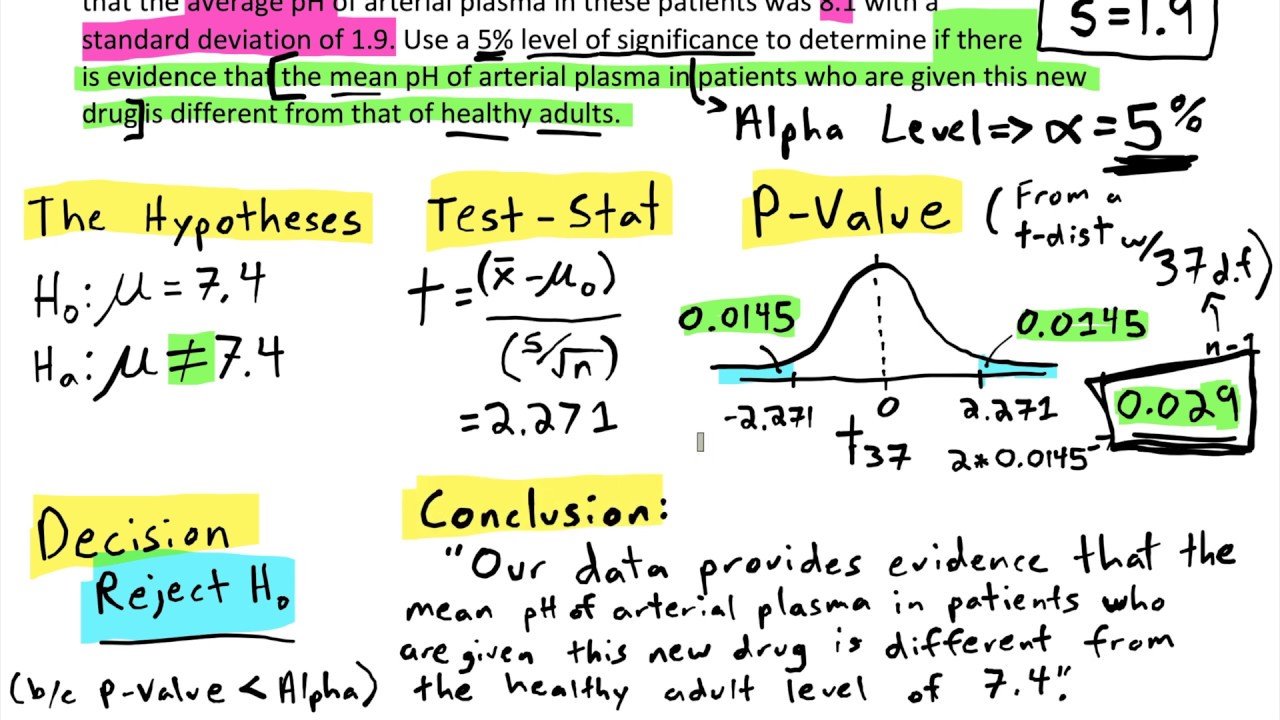 that the average pH of arterial plasma in these patients was 8.1 with a
standard deviation of 1.9. Use a 5% level of significance to determine if there
is evidence that the mean pH of arterial plasma in patients who are given this new
drug is different from that of healthy adults.
S=1.9
Alpha Level => α = 5%
The Hypotheses
H₀: μ = 7.4
Hₐ: μ ≠ 7.4
Test-Stat
t = (x̄ - μ₀)
(s/√n)
= 2.271
P-Value (From a
t-dist w/ 37 d.f)
n-1
0.0145
0.0145
-2.271 0 2.271
t₃₇
2*0.0145=
0.029
Decision
Reject H₀
(b/c p-value < Alpha)
Conclusion:
"Our data provides evidence that the
mean pH of arterial plasma in patients who
are given this new drug is different from
the healthy adult level of 7.4".